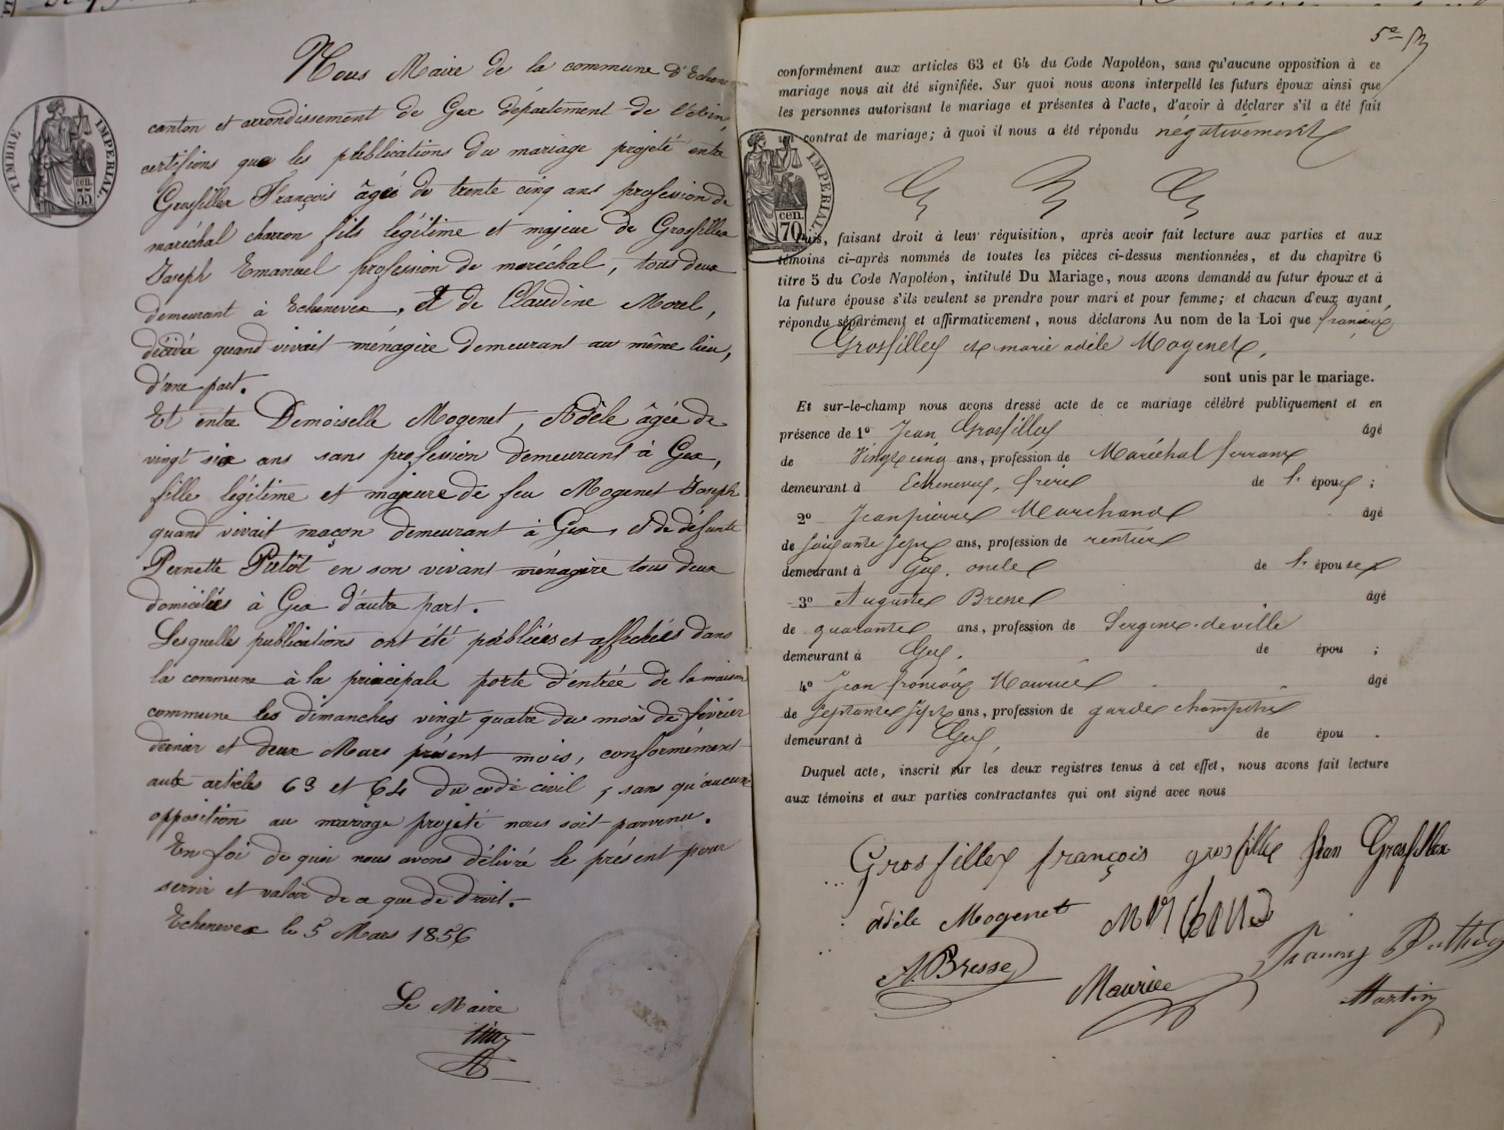 Nous Maire de la commune d'Echenevex
canton et arrondissement de Gex département de l'Ain,
certifions que les publications du mariage projeté entre
Grosfillex François âgé de trente cinq ans profession de
maréchal charron fils légitime et majeur de Grosfillex
Joseph Emanuel profession de maréchal, tous deux
demeurant à Echenevex, Et de Claudine Morel,
décédée quand vivait ménagère demeurant au même lieu,
d'une part.
Et entre Demoiselle Mogenet, Adèle âgée de
vingt six ans sans profession demeurant à Gex,
fille légitime et majeure de feu Mogenet Joseph
quand vivait maçon demeurant à Gex, et de défunte
Pernette en son vivant ménagère tous deux
domiciliés à Gex d'autre part.
Lesquelles publications ont été publiées et affichées dans
la commune à la principale porte d'entrée de la maison
commune les dimanches vingt quatre du mois de février
dernier et deux Mars présent mois, conformément
aux articles 63 et 64 du code civil, sans qu'aucune
opposition au mariage projeté nous soit parvenu.
En foi de quoi nous avons délivré le présent pour
servir et valoir de ce que de droit.
Echenevex le 5 Mars 1856
Le Maire
TIMBRE IMPERIAL.
35 cen.
conformément aux articles 63 et 64 du Code Napoléon, sans qu'aucune opposition à ce
mariage nous ait été signifiée. Sur quoi nous avons interpellé les futurs époux ainsi que
les personnes autorisant le mariage et présentes à l'acte, d'avoir à déclarer s'il a été fait
un contrat de mariage; à quoi il nous a été répondu négativement
IMPERIAL.
cen. 70
Puis, faisant droit à leur réquisition, après avoir fait lecture aux parties et aux
témoins ci-après nommés de toutes les pièces ci-dessus mentionnées, et du chapitre 6
titre 5 du Code Napoléon, intitulé Du Mariage, nous avons demandé au futur époux et à
la future épouse s'ils veulent se prendre pour mari et pour femme; et chacun d'eux ayant
répondu séparément et affirmativement, nous déclarons Au nom de la Loi que françois
Grosfillex et marie adèle Mogenet,
sont unis par le mariage.
Et sur-le-champ nous avons dressé acte de ce mariage célébré publiquement et en
présence de 1º Jean Grosfillex âgé
de Vingt cinq ans, profession de Maréchal ferrant
demeurant à Echenevex, frère de l' époux ;
2º Jean pierre Marchand âgé
de soixante sept ans, profession de rentier
demeurant à Gex, oncle de l' épouse
3º Auguste Bresse âgé
de quarante ans, profession de Sergent de ville
demeurant à Gex. de épou ;
4º Jean françois Maurice âgé
de septante sept ans, profession de garde champêtre
demeurant à Gex, de épou .
Duquel acte, inscrit sur les deux registres tenus à cet effet, nous avons fait lecture
aux témoins et aux parties contractantes qui ont signé avec nous
Grosfillex françois grosfillex Jean Grosfillex
adèle Mogenet
A. Bresse Maurice Martin